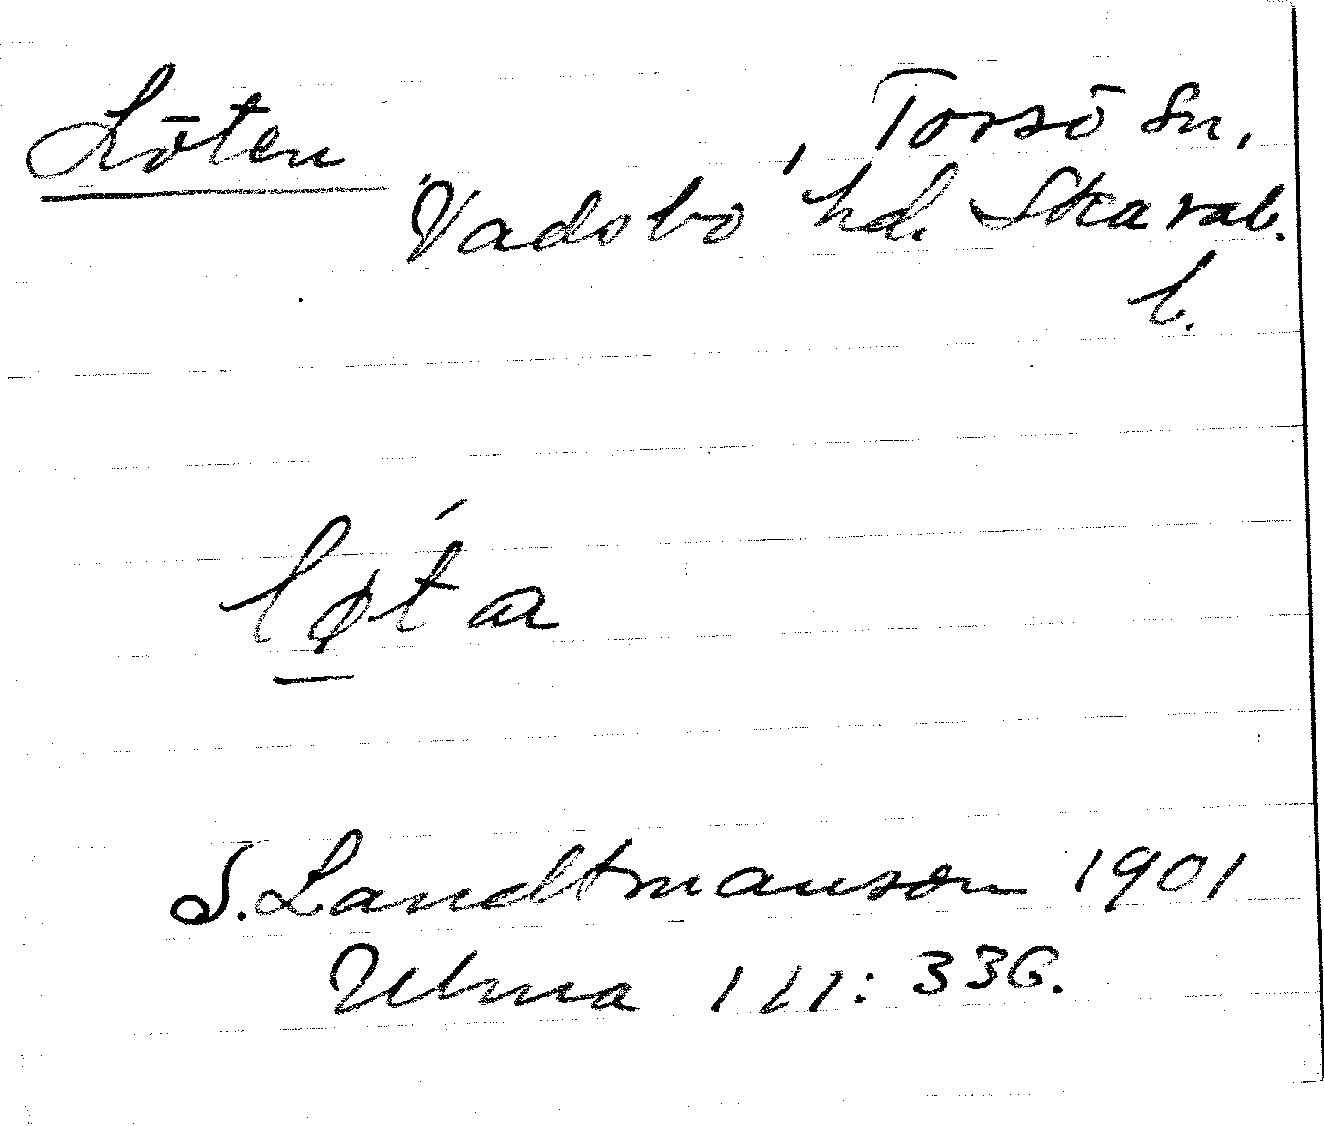 Löten , Torsö Sn,
Vadsbo hd. Skarab.
l.
lø̲t́a
S. Landtmanson 1901
Ulma 111: 336.